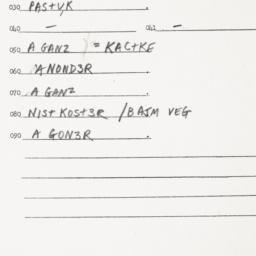 030 PAS+V,K
040 — 042 —
050 A GANZ ) = KAC+KE
060 A NOND3R
070 A GANZ
080 NIS+ KOS+3R / BAJM VEG
090 A GON3R